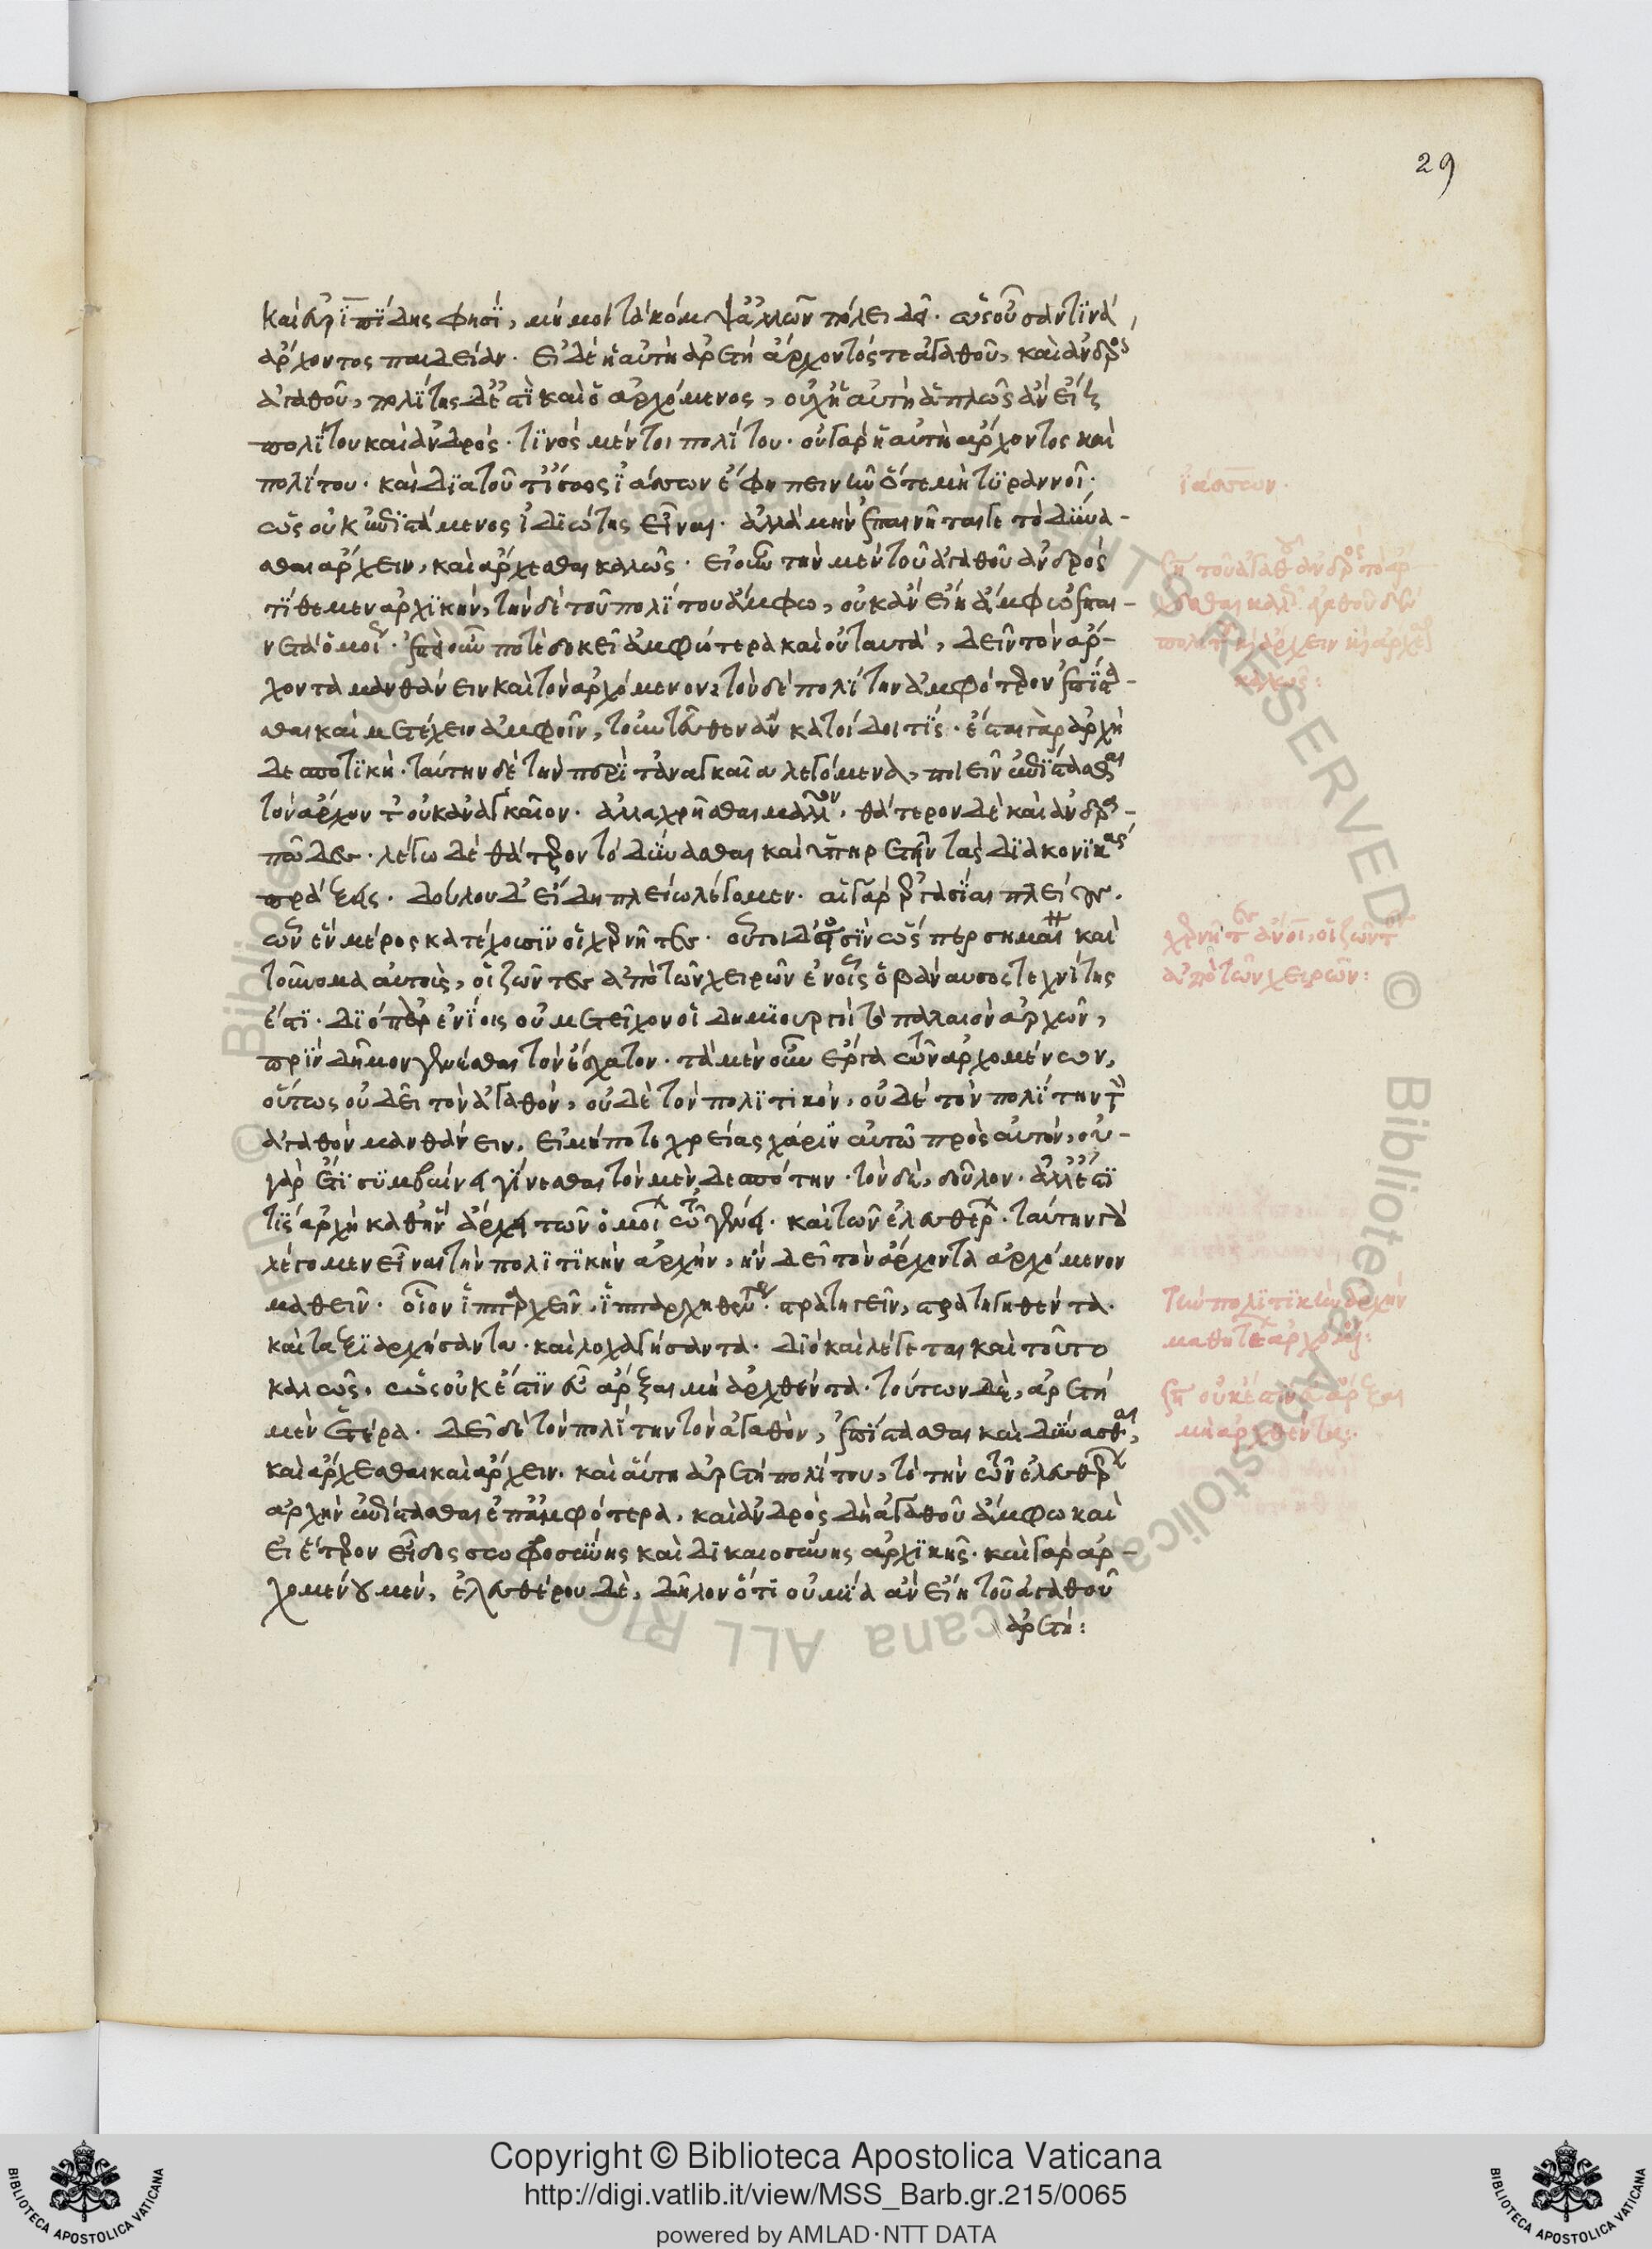 29
καὶ εὐριπίδης φησὶ, μή μοι τὰ κόμψ' ἀλλ' ὧν πόλει δεῖ. ὡς οὖσάν τινα
ἄρχοντος παιδείαν. εἰ δὲ ἡ αὐτὴ ἀρετὴ ἄρχοντός τε ἀγαθοῦ, καὶ ἀνδρὸς
ἀγαθοῦ, πολίτης δ' ἐστὶ καὶ ὁ ἀρχόμενος, οὐχ ἡ αὐτὴ ἁπλῶς ἂν εἴη
πολίτου καὶ ἀνδρός. τινὸς μέντοι πολίτου. οὐ γὰρ ἡ αὐτὴ ἄρχοντος καὶ
πολίτου. καὶ διὰ τοῦτ' ἴσως ἰάσων ἔφη πεινῆν ὅτε μὴ τυραννοῖ.
ὡς οὐκ ἐπιστάμενος ἰδιώτης εἶναι. ἀλλὰ μὴν ἐπαινεῖταί γε τὸ δύνα-
σθαι ἄρχειν, καὶ ἄρχεσθαι καλῶς. εἰ οὖν τὴν μὲν τοῦ ἀγαθοῦ ἀνδρὸς
τίθεμεν ἀρχικὴν, τὴν δὲ τοῦ πολίτου ἄμφω, οὐκ ἂν εἴη ἄμφω ἐπαι-
νετὰ ὁμοί. ἐπεὶ οὖν ποτὲ δοκεῖ ἀμφότερα καὶ οὐ ταυτὰ, δεῖν τὸν ἄρ-
χοντα μανθάνειν καὶ τὸν ἀρχόμενον, τὸν δὲ πολίτην ἀμφότερον ἐπίστα-
σθαι καὶ μετέχειν ἀμφοῖν, τοὐντεῦθεν ἂν κατίδοι τίς. ἔστι γὰρ ἀρχὴ
δεσποτικὴ. ταύτην δὲ τὴν περὶ τἀναγκαῖα λεγόμενα, ποιεῖν ἐπίστασθαι
τὸν ἄρχοντ' οὐκ ἀναγκαῖον. ἀλλὰ χρῆσθαι μᾶλλον. θάτερον δὲ καὶ ἀνδρα-
ποδῶδες. λέγω δὲ θάτερον τὸ δύνασθαι καὶ ὑπηρετεῖν τὰς διακονικὰς
πράξεις. δούλου δ' εἴδη πλείω λέγομεν. αἱ γὰρ ἐργασίαι πλείους.
ὧν ἓν μέρος κατέχουσιν οἱ χερνῆτες. οὗτοι δ' εἰσὶν ὥσπερ σημαίνει καὶ
τοὔνομα αὐτοὺς, οἱ ζῶντες ἀπὸ τῶν χειρῶν ἐν οἷς ὁ βάναυσος τεχνίτης
ἐστί. διόπερ ἐνίοις οὐ μετεῖχον οἱ δημιουργοὶ τὸ παλαιὸν ἀρχῶν,
πρὶν δῆμον γενέσθαι τὸν ἔσχατον. τὰ μὲν οὖν ἔργα τῶν ἀρχομένων,
οὕτως οὐ δεῖ τὸν ἀγαθὸν, οὐδὲ τὸν πολιτικὸν, οὐδὲ τὸν πολίτην τὸν
ἀγαθὸν μανθάνειν. εἰ μή ποτε χρείας χάριν αὐτῷ πρὸς αὐτὸν, οὐ-
γὰρ ἔτι συμβαίνει γίνεσθαι τὸν μὲν δεσπότην. τὸν δὲ, δοῦλον. ἀλλ' ἔστι
τὶς ἀρχὴ καθ' ἣν ἄρχει τῶν ὁμοίων τῷ γένει. καὶ τῶν ἐλευθέρων. ταύτην γὰρ
λέγομεν εἶναι τὴν πολιτικὴν ἀρχὴν, ἣν δεῖ τὸν ἄρχοντα ἀρχόμενον
μαθεῖν. οἷον ἱππαρχεῖν, ἱππαρχηθέντα. στρατηγεῖν, στρατηγηθέντα.
καὶ ταξιαρχήσαντα. καὶ λοχαγήσαντα. διὸ καὶ λέγεται καὶ τοῦτο
καλῶς. ὡς οὐκ ἔστιν εὖ ἄρξαι μὴ ἀρχθέντα. τούτων δὲ, ἀρετὴ
μὲν ἑτέρα. δεῖ δὲ τὸν πολίτην τὸν ἀγαθὸν, ἐπίστασθαι καὶ δύνασθαι,
καὶ ἄρχεσθαι καὶ ἄρχειν. καὶ αὕτη ἀρετὴ πολίτου, τὸ τὴν τῶν ἐλευθέρων
ἀρχὴν ἐπίστασθαι ἐπ' ἀμφότερα. καὶ ἀνδρὸς δὴ ἀγαθοῦ ἄμφω καὶ
εἰ ἕτερον εἶδος σωφροσύνης καὶ δικαιοσύνης ἀρχικῆς. καὶ γὰρ ἀρ-
χομένου μὲν, ἐλευθέρου δὲ, δῆλον ὅτι οὐ μία ἂν εἴη τοῦ ἀγαθοῦ
ἀρετὴ:
ἰάσων.
χερνῆτ ἄνοι, οἱ ζῶντες
ἀπὸ τῶν χειρῶν:
τὴν πολιτικὴν ἀρχὴν
ὅτι οὐκ ἔστιν εὖ ἄρξαι
μὴ ἀρχθέντα:
Copyright © Biblioteca Apostolica Vaticana
http://digi.vatlib.it/view/MSS_Barb.gr.215/0065
powered by AMLAD·NTT DATA